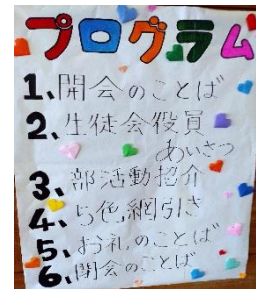 プログラム
1、開会のことば
2、生徒会役員
あいさつ
3、部活動紹介
4、5色綱引き
5、お礼のことば
6、閉会のことば